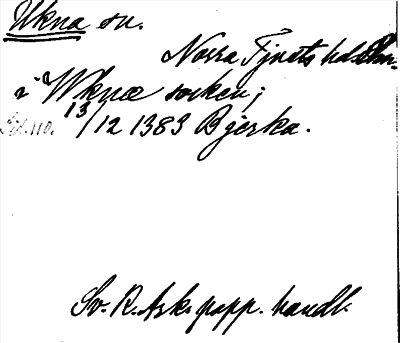 Ukna sn.
Norra Tjusts hd
i Wknæ socken;
13/12 1383 Bjerka.
Sv. R. Ark. papp. handl.